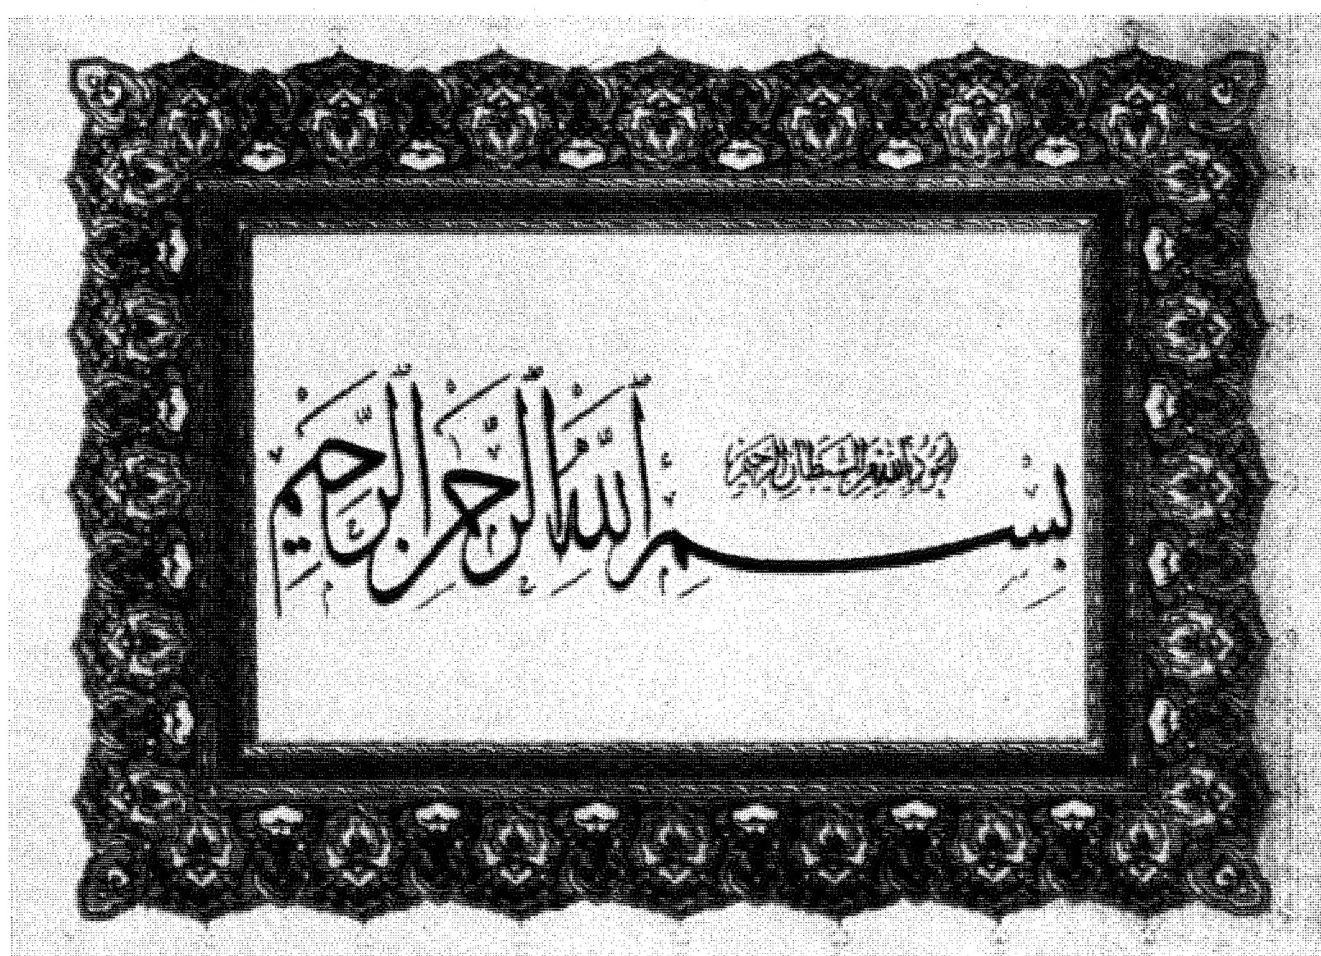 أعوذ بالله من الشيطان الرجيم
بِسْمِ اللَّهِ الرَّحْمَٰنِ الرَّحِيمِ